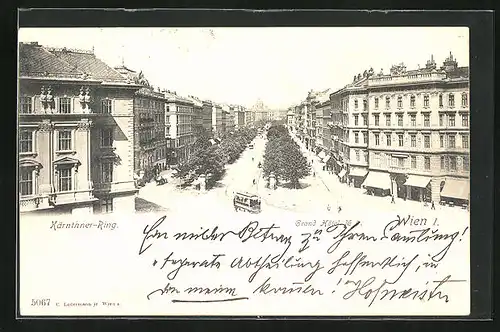 Kärnthner-Ring.
Grand Hôtel
Wien I.
Ein milder Betrag zu Ihrer Sammlung!
Abtheilung hoffentlich, in
meine kommen! Hofmeister
5067 C. Ledermann jr. Wien I.